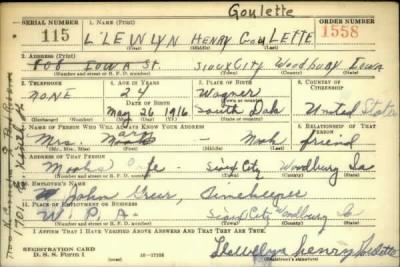 Goulette
SERIAL NUMBER 1. NAME (Print) ORDER NUMBER
115 L'LEWLYN HENRY GOULETTE 1558
(First) (Middle) (Last)
2. ADDRESS (Print)
808 IOWA ST. SIOUX CITY WOODBURY IOWA
(Number and street or R. F. D. number) (Town) (County) (State)
3. TELEPHONE 4. AGE IN YEARS 5. PLACE OF BIRTH 6. COUNTRY OF CITIZENSHIP
NONE 24 Wagner
DATE OF BIRTH (Town or county)
May 26 1916 South Dak United States
(Exchange) (No.) (Mo.) (Day) (Yr.) (State or country)
7. NAME OF PERSON WHO WILL ALWAYS KNOW YOUR ADDRESS 8. RELATIONSHIP OF THAT PERSON
Mrs. Mook friend
(Mr., Mrs., Miss) (First) (Middle) (Last)
9. ADDRESS OF THAT PERSON
Mooks Sioux City Woodbury Ia
(Number and street or R. F. D. number) (Town) (County) (State)
10. EMPLOYER'S NAME
John Timekeeper
11. PLACE OF EMPLOYMENT OR BUSINESS
W.P.A. Sioux City Woodbury Ia
(Number and street or R. F. D. number) (Town) (County) (State)
I AFFIRM THAT I HAVE VERIFIED ABOVE ANSWERS AND THAT THEY ARE TRUE.
REGISTRATION CARD
D. S. S. Form 1 16—17105 Llewellyn henry Goulette
(Registrant's signature)
1701